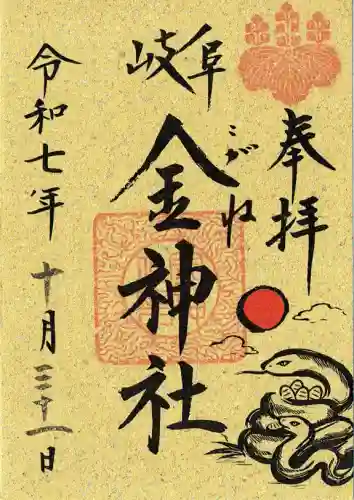 奉拝
岐阜
金神社
こがね
令和七年十月三十一日